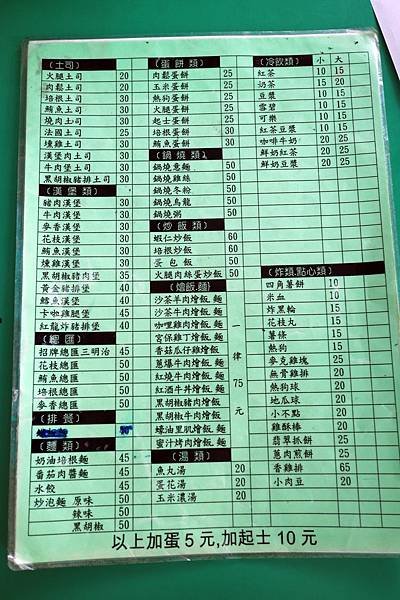 (土司)
火腿土司 20
肉鬆土司 20
培根土司 30
鮪魚土司 30
燒肉土司 30
法國土司 25
燻雞土司 30
漢堡肉土司 30
牛肉堡土司 30
黑胡椒豬排土司 30
(漢堡類)
豬肉漢堡 30
牛肉漢堡 30
麥香漢堡 30
花枝漢堡 30
鮪魚漢堡 30
燻雞漢堡 30
黑胡椒豬肉堡 35
黃金豬排堡 40
鱈魚漢堡 40
卡啦雞腿堡 50
紅龍炸豬排堡 40
(總匯)
招牌總匯三明治 45
花枝總匯 50
鮪魚總匯 50
培根總匯 50
麥香總匯 50
(排餐)
(麵類)
奶油培根麵 45
番茄肉醬麵 45
水餃 45
炒泡麵 原味 50
辣味 50
黑胡椒 50
(蛋餅類)
肉鬆蛋餅 25
玉米蛋餅 25
熱狗蛋餅 25
火腿蛋餅 25
起士蛋餅 25
培根蛋餅 30
鮪魚蛋餅 30
(鍋燒類)
鍋燒意麵 50
鍋燒雞絲 50
鍋燒冬粉 50
鍋燒烏龍 50
鍋燒粥 50
(炒飯類)
蝦仁炒飯 60
培根炒飯 60
蛋包飯 50
火腿肉絲蛋炒飯 50
(燴飯.麵)
沙茶羊肉燴飯.麵
沙茶牛肉燴飯.麵
咖哩雞肉燴飯.麵
宮保雞丁燴飯.麵
香菇瓜仔雞燴飯
蔥爆牛肉燴飯.麵
紅燒牛肉燴飯.麵
紅酒牛丼燴飯.麵
黑胡椒豬肉燴飯
黑胡椒牛肉燴飯
蠔油里肌燴飯.麵
蜜汁烤肉燴飯.麵
一律75元
(湯類)
魚丸湯 20
蛋花湯 20
玉米濃湯 20
(冷飲類) 小 大
紅茶 10 15
奶茶 15 20
豆漿 10 15
雪碧 10 15
可樂 10 15
紅茶豆漿 15 20
咖啡牛奶 20 25
鮮奶紅茶 20 25
鮮奶豆漿 20 25
(炸類.點心類)
四角薯餅 10
米血 10
炸黑輪
花枝丸
薯條
熱狗
麥克雞塊 25
無骨雞排
熱狗球 20
地瓜球 20
小不點 20
雞酥棒 20
翡翠抓餅 25
蔥肉煎餅 25
香雞排 65
小肉豆 20
以上加蛋5元,加起士10元